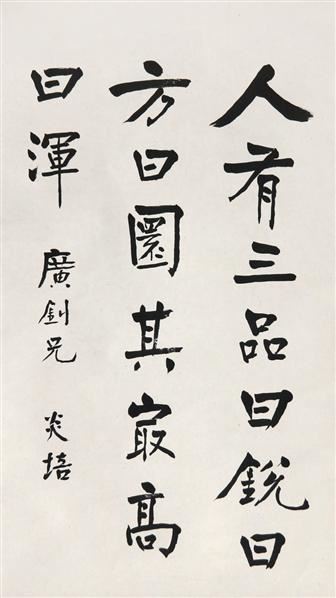 人有三品曰銳曰
方曰圜其冣高
曰渾 廣釗兄 炎培